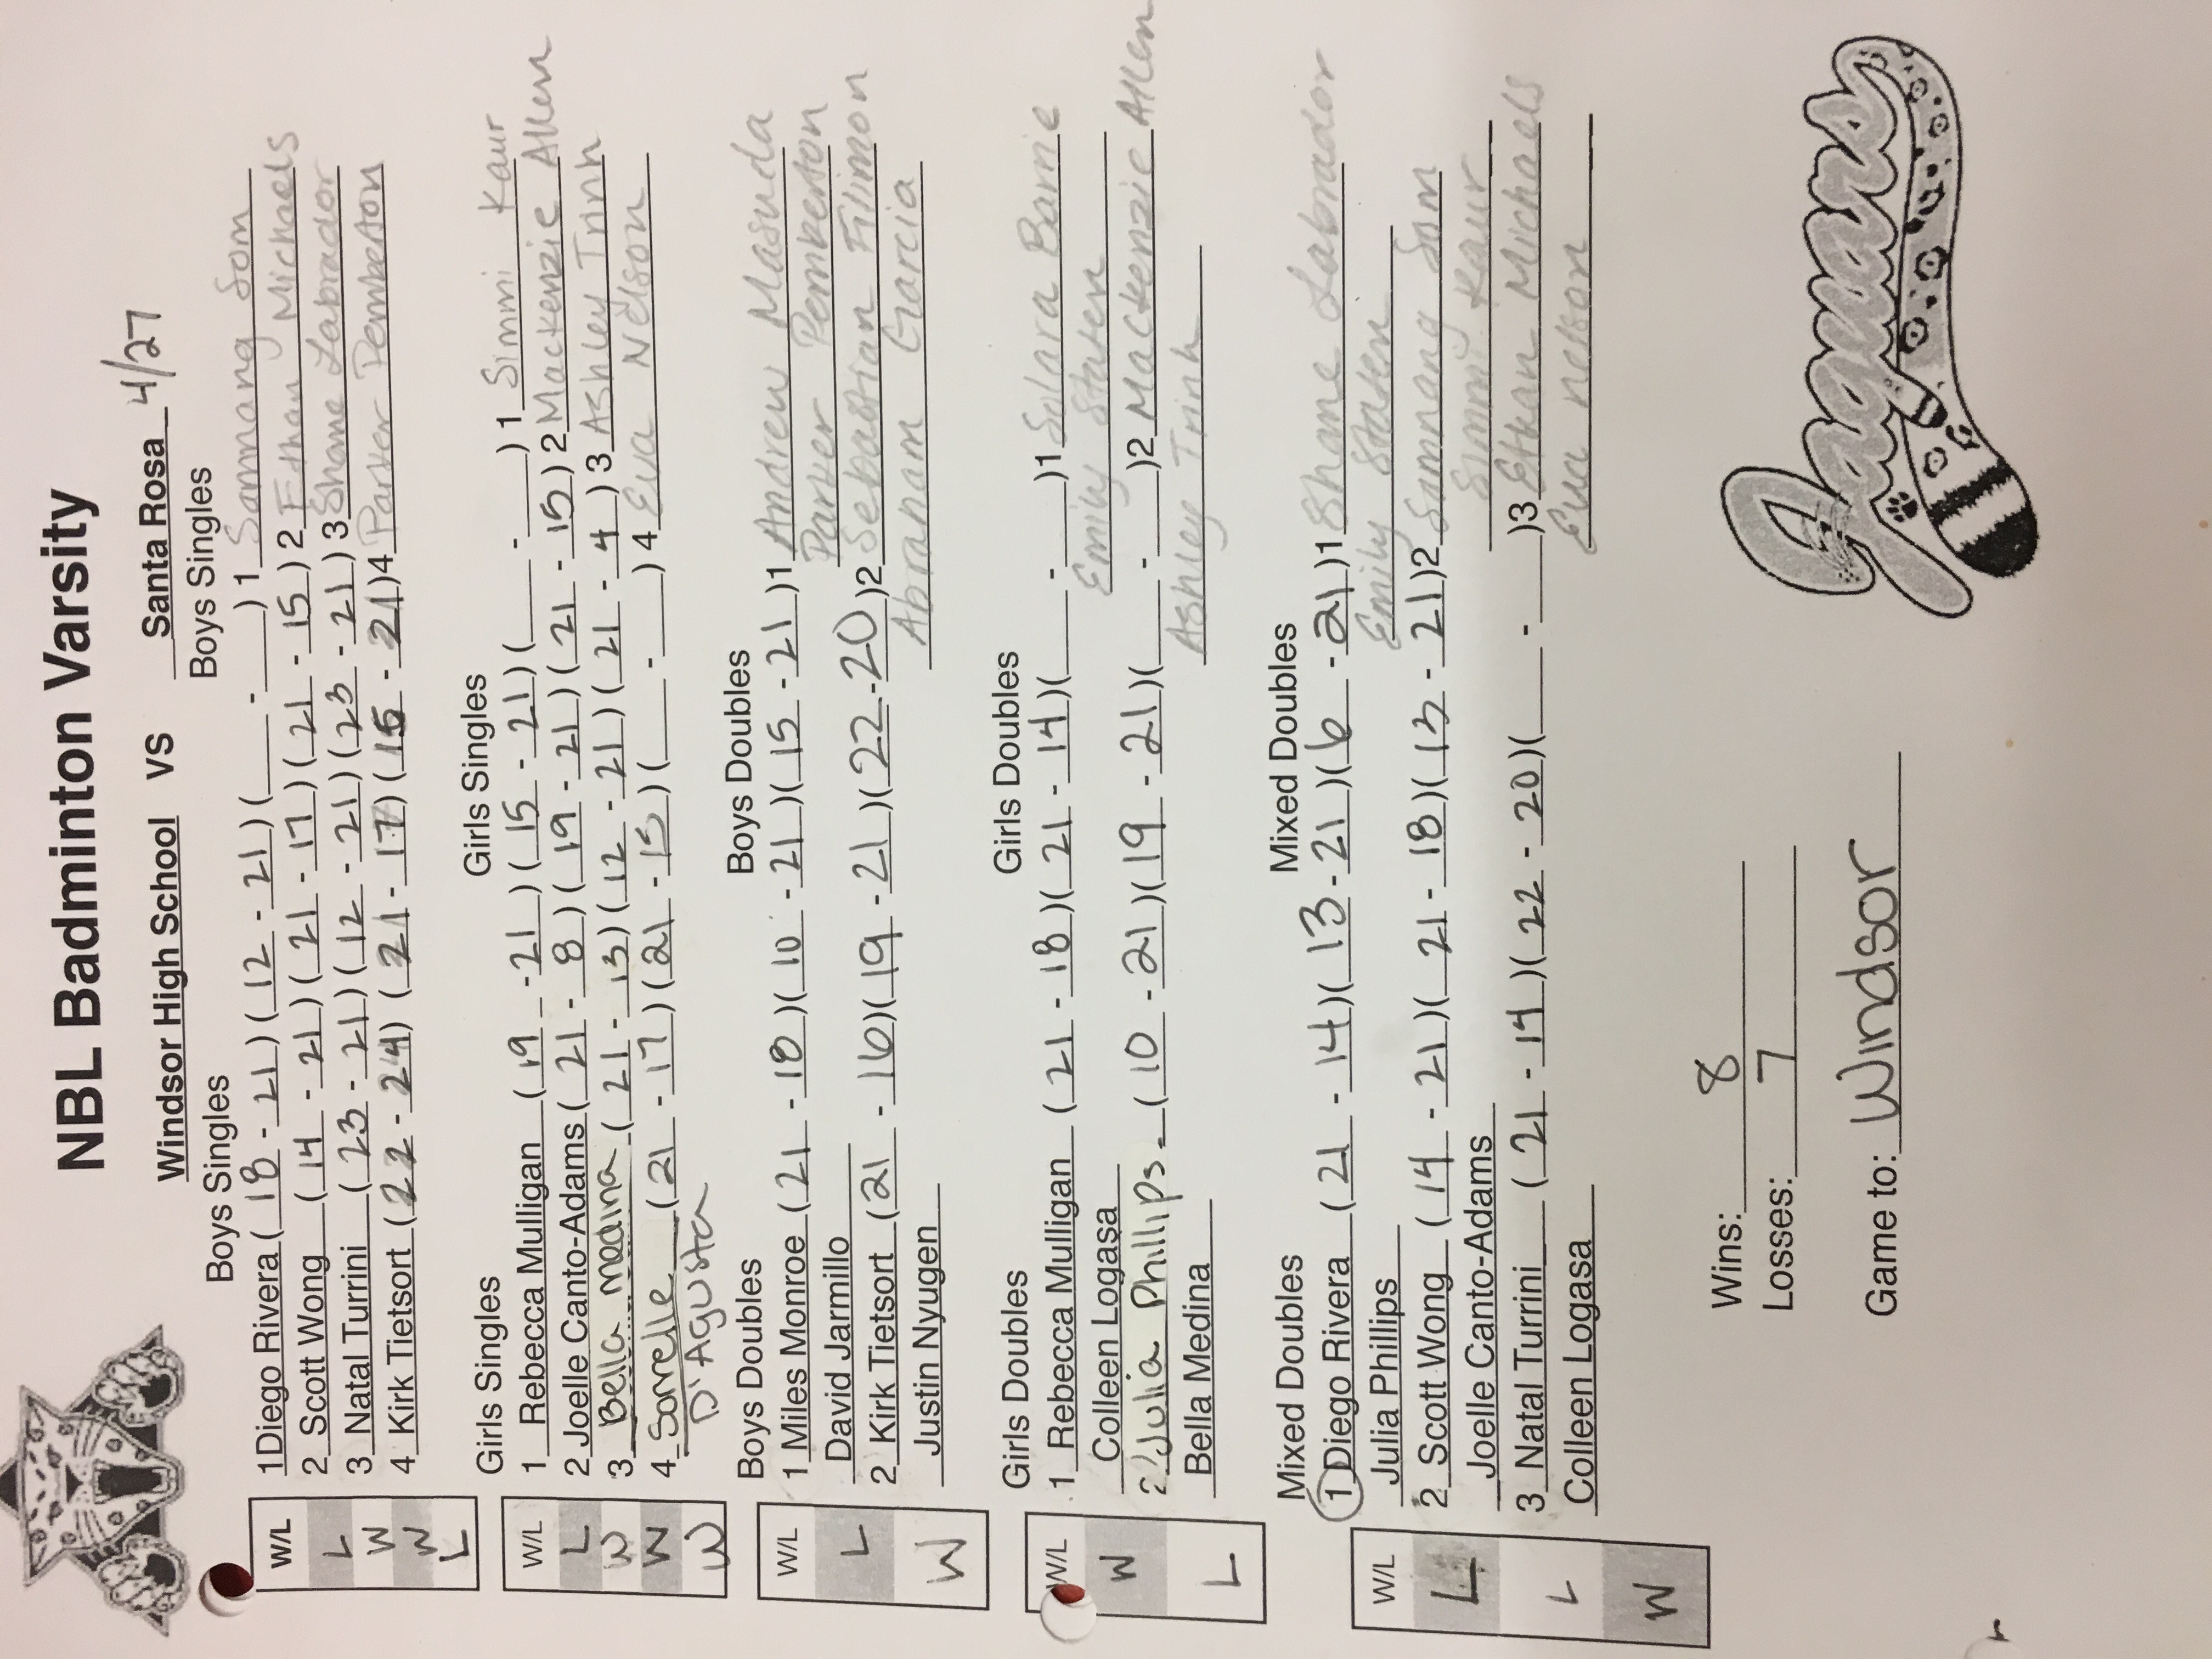 NBL Badminton Varsity
Windsor High School VS Santa Rosa 4/27
Boys Singles Boys Singles
W/L
L 1 Diego Rivera (18 - 21) (12 - 21) ( - ) 1 Samnang Som
W 2 Scott Wong (14 - 21) (21 - 17) (21 - 15) 2 Ethan Michaels
W 3 Natal Turrini (23 - 21) (12 - 21) (23 - 21) 3 Shane Labrador
L 4 Kirk Tietsort (22 - 24) (21 - 17) (15 - 21) 4 Parker Pemberton
Girls Singles Girls Singles
W/L
L 1 Rebecca Mulligan (19 - 21) (15 - 21) ( - ) 1 Simmi Kaur
W 2 Joelle Canto-Adams (21 - 8) (19 - 21) (21 - 15) 2 Mackenzie Allen
W 3 Bella medina (21 - 13) (12 - 21) (21 - 4) 3 Ashley Trinh
W 4 Sorrelle (21 - 17) (21 - 15) ( - ) 4 Eva Nelson
D'Agusta
Boys Doubles Boys Doubles
W/L
L 1 Miles Monroe (21 - 18) (10 - 21) (15 - 21) 1 Andrew Masuda
David Jarmillo Parker Pemberton
W 2 Kirk Tietsort (21 - 16) (19 - 21) (22 - 20) 2 Sebastian Filimon
Justin Nyugen Abranam Garcia
Girls Doubles Girls Doubles
W/L
W 1 Rebecca Mulligan (21 - 18) (21 - 14) ( - ) 1 Solara Barrie
Colleen Logasa Emily Staten
L 2 Julia Phillips (10 - 21) (19 - 21) ( - ) 2 Mackenzie Allen
Bella Medina Ashley Trinh
Mixed Doubles Mixed Doubles
W/L
L 1 Diego Rivera (21 - 14) (13 - 21) (6 - 21) 1 Shane Labrador
Julia Phillips Emily Staten
L 2 Scott Wong (14 - 21) (21 - 18) (13 - 21) 2 Samnang Som
Joelle Canto-Adams Simmi Kaur
W 3 Natal Turrini (21 - 14) (22 - 20) ( - ) 3 Ethan Michaels
Colleen Logasa Eva nelson
Wins: 8
Losses: 7
Game to: Windsor
Jaguars